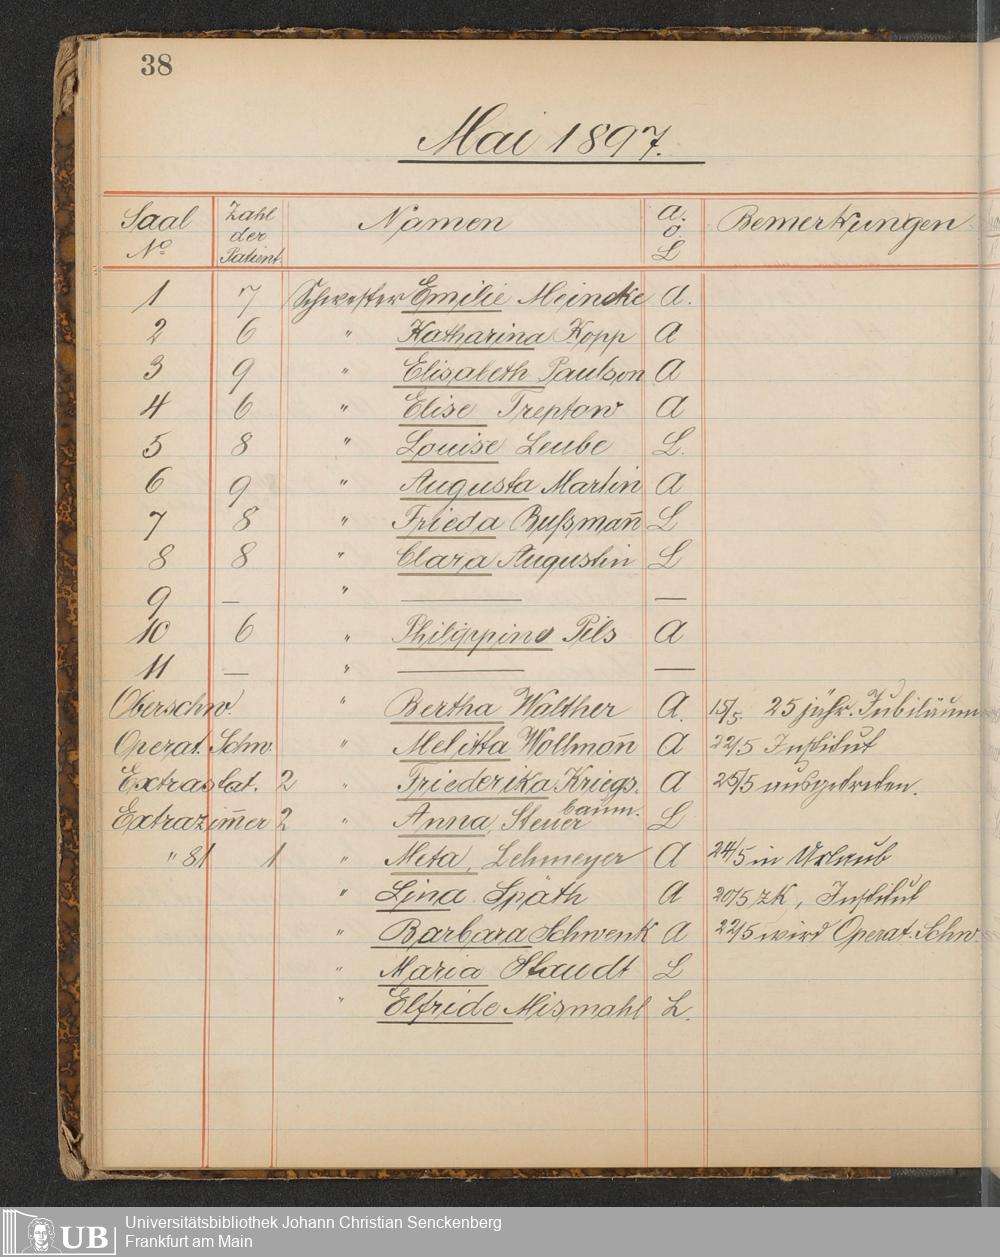 38
Mai 1897.
Saal No Zahl der Patient. Namen a. o. L Bemerkungen
1 7 Schwester Emilie Meincke A.
2 6 " Katharina Kopp A
3 9 " Elisabeth Paulson A
4 6 " Elise Treptow A
5 8 " Louise Leube L.
6 9 " Augusta Martin A
7 8 " Frieda Bußmañ L
8 8 " Clara Augustin L
9 — " — —
10 6 " Philippine Pils A
11 — " — —
Oberschw. " Bertha Walther A. 15/5. 25 jähr. Jubiläum
Operat. Schw. " Melitta Wollmañ A 22/5 Institut
Extrastat. 2 " Friederika Kriegsbaum. A 25/5 ausgetreten.
Extrazim̄er 2 " Anna Steuer L
" 81 1 " Meta Lehmeyer A 24/5 in Urlaub
" Lina Späth A 20/5 zk, Institut
" Barbara Schwenk A 22/5 wird Operat. Schw.
" Maria Staudt L
" Elfride Mismahl L.
UB
Universitätsbibliothek Johann Christian Senckenberg
Frankfurt am Main